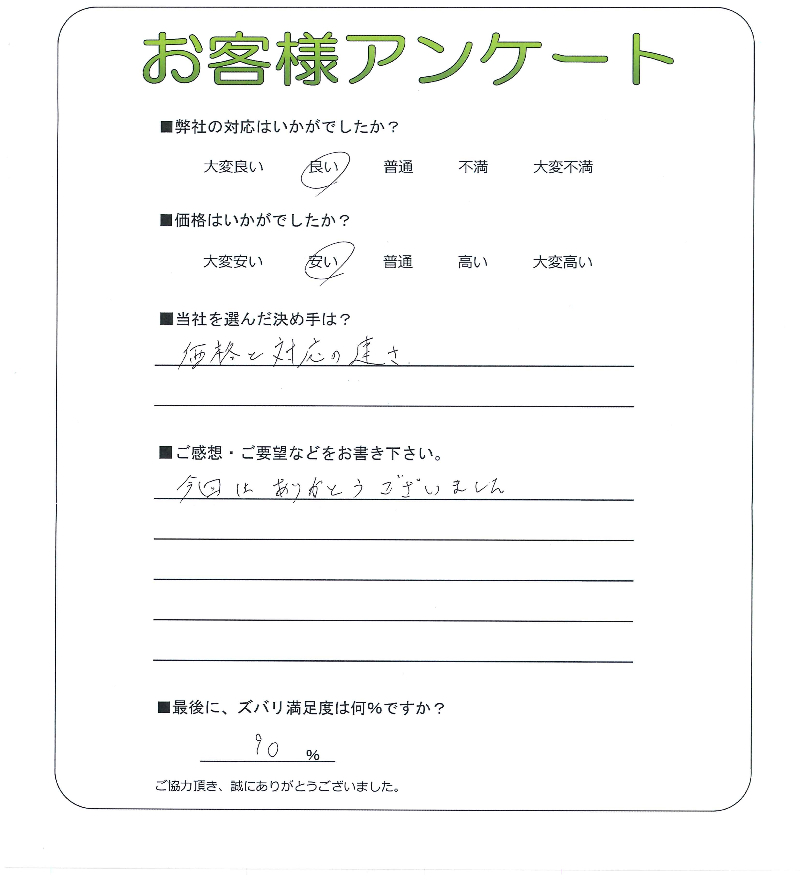 お客様アンケート
■弊社の対応はいかがでしたか？
大変良い 良い 普通 不満 大変不満
■価格はいかがでしたか？
大変安い 安い 普通 高い 大変高い
■当社を選んだ決め手は？
価格と対応の速さ
■ご感想・ご要望などをお書き下さい。
今回はありがとうございました
■最後に、ズバリ満足度は何%ですか？
90 %
ご協力頂き、誠にありがとうございました。